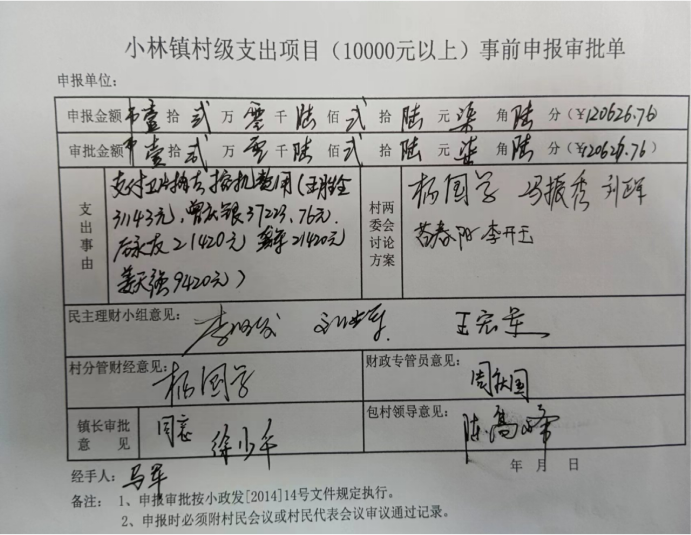 小林镇村级支出项目（10000元以上）事前申报审批单
申报单位：
申报金额 壹拾贰万零千陆佰贰拾陆元柒角陆分（¥120626.76）
审批金额 壹拾贰万零千陆佰贰拾陆元柒角陆分（¥120626.76）
支出事由
支付卫片拆除挖机费用（王胜全
31143元，曾庆银37223.76元，
后永友21420元 21420元
姜天强9420元）
村两委会讨论方案
杨国学 马振秀
苗春阳 李开玉
民主理财小组意见：
王宏军
村分管财经意见：
杨国学
财政专管员意见：
周秋国
镇长审批意见
同意 徐少午
包村领导意见：
陈高峰
年 月 日
经手人：马军
备注： 1、申报审批按小政发[2014]14号文件规定执行。
2、申报时必须附村民会议或村民代表会议审议通过记录。